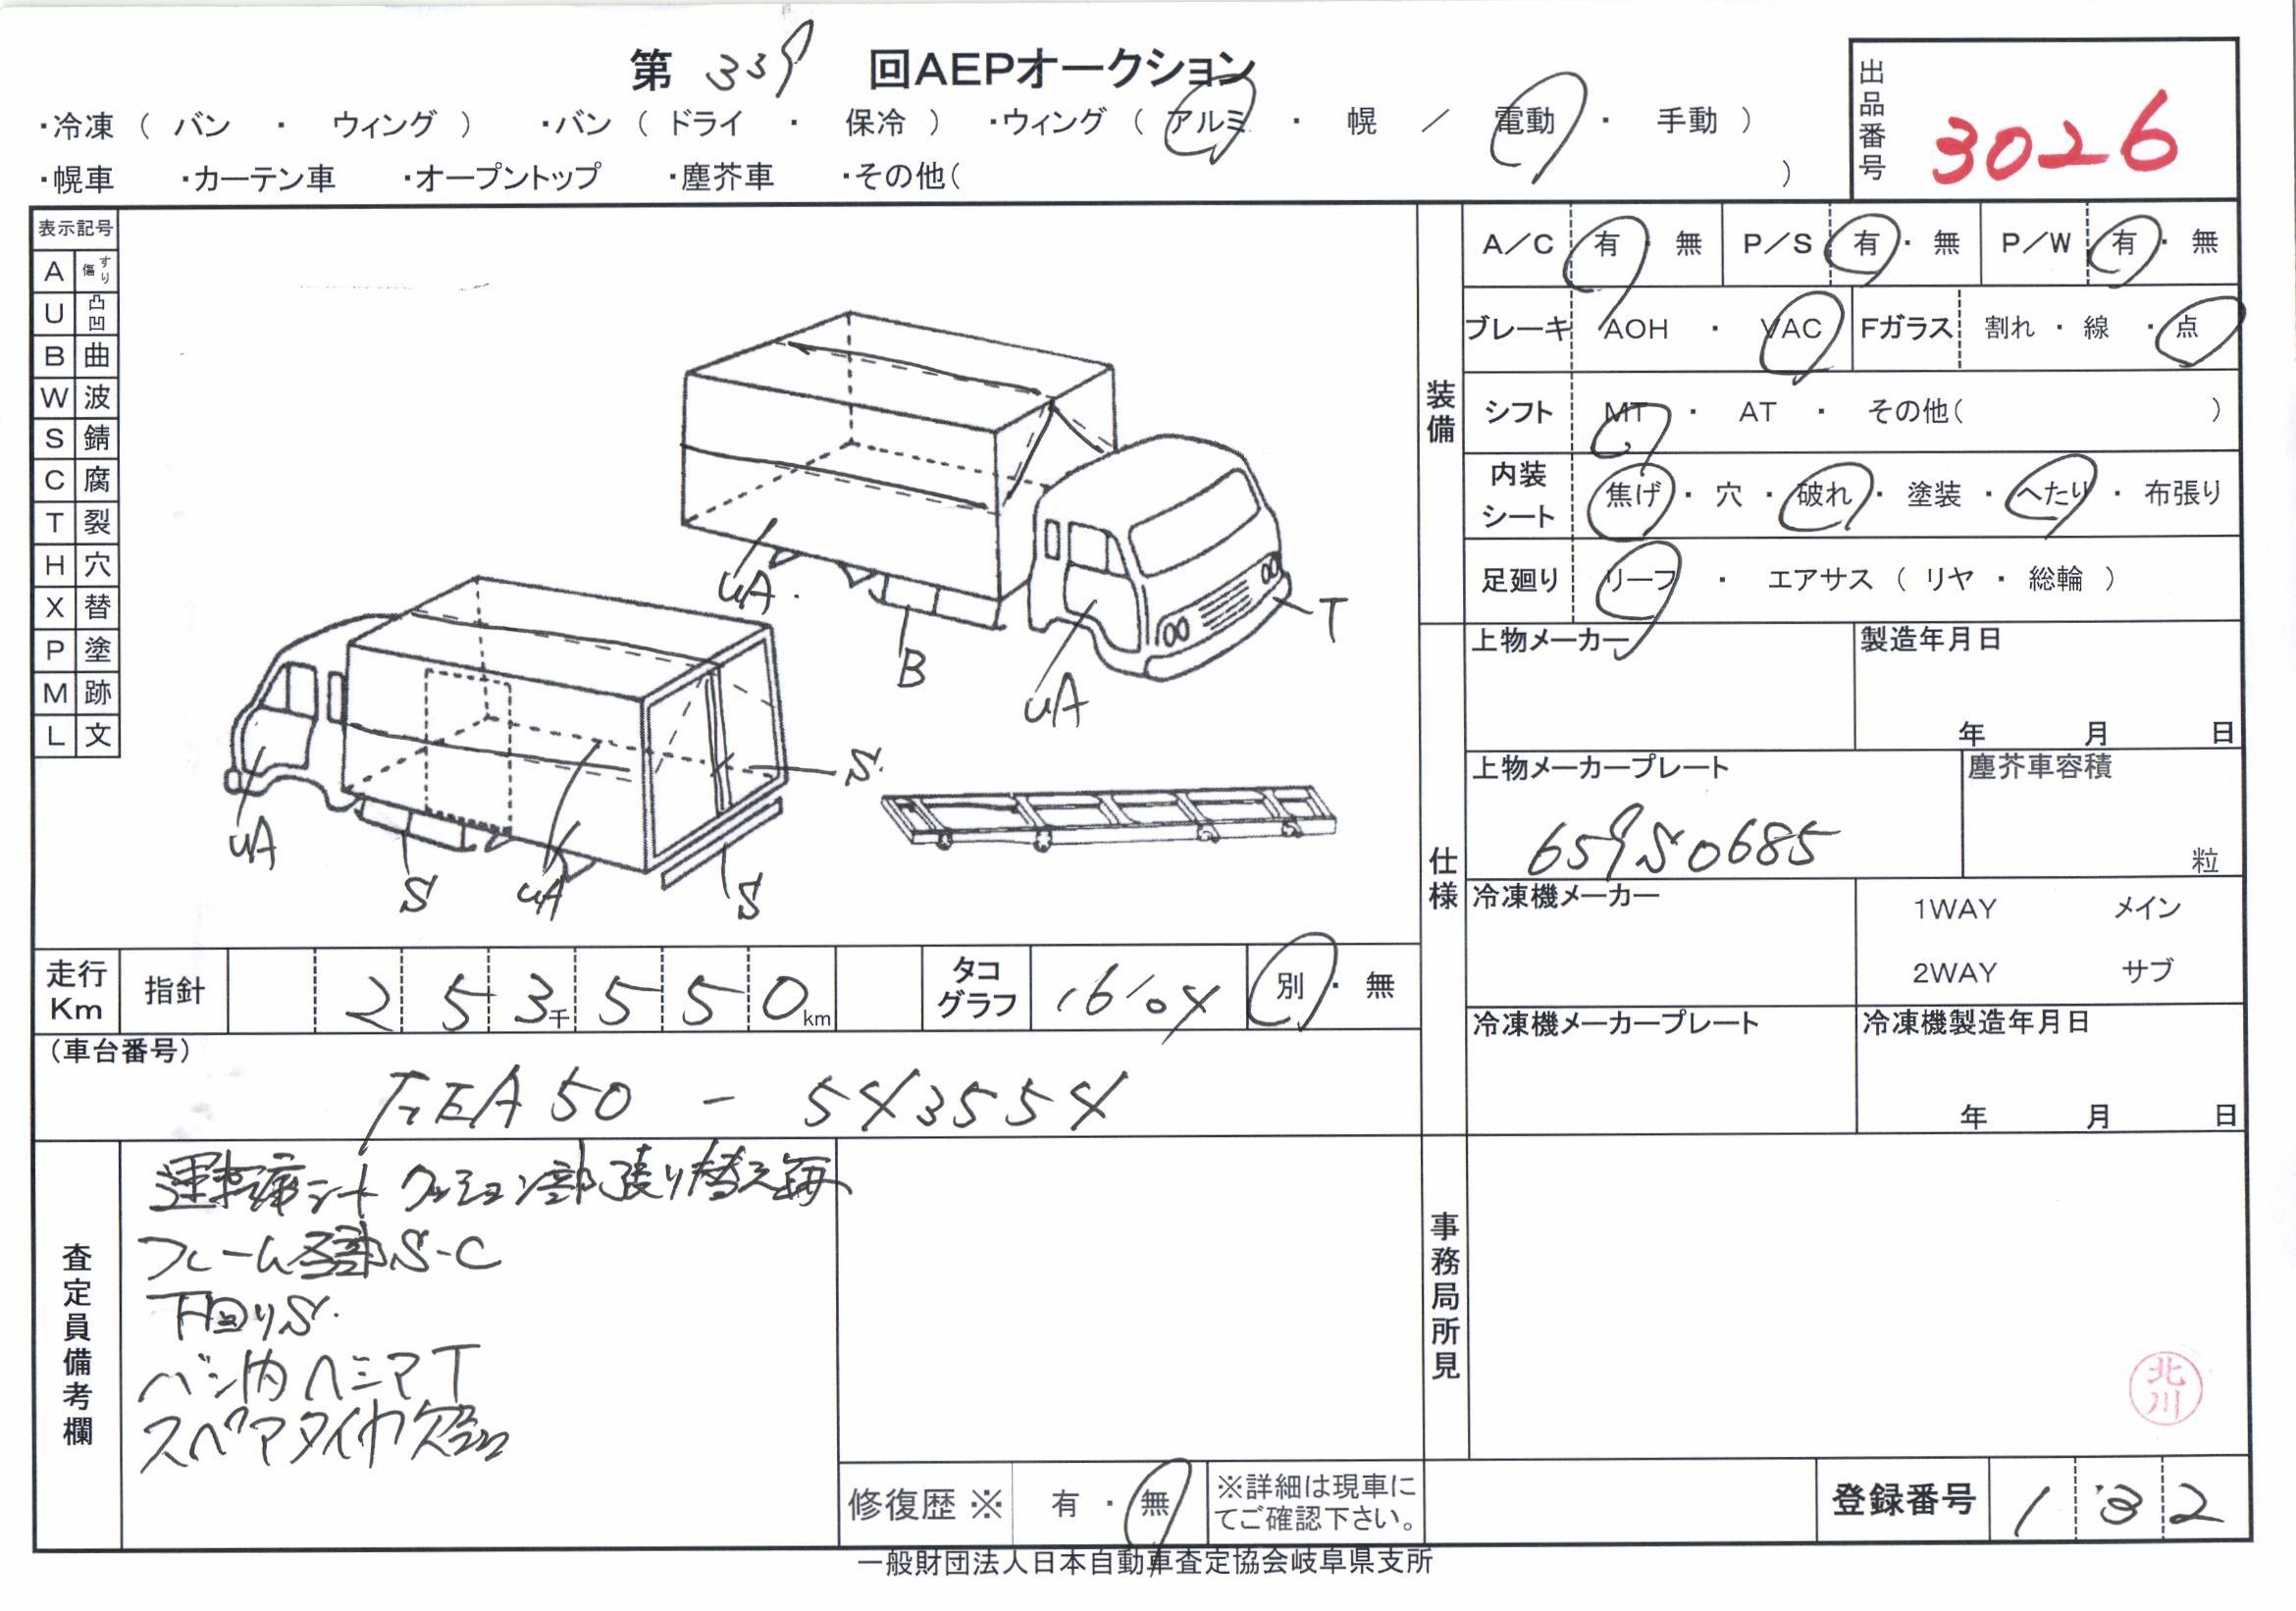 第 339 回AEPオークション
・冷凍 ( バン ・ ウィング ) ・バン ( ドライ ・ 保冷 ) ・ウィング ( アルミ ・ 幌 / 電動 ・ 手動 )
・幌車 ・カーテン車 ・オープントップ ・塵芥車 ・その他( )
出品番号 3026
表示記号
A すり傷
U 凸凹
B 曲
W 波
S 錆
C 腐
T 裂
H 穴
X 替
P 塗
M 跡
L 文
UA
B
UA
T
UA
S
UA
S
S
装備
A/C 有・無 P/S 有・無 P/W 有・無
ブレーキ AOH ・ VAC Fガラス 割れ・線・点
シフト MT ・ AT ・ その他( )
内装シート 焦げ・穴・破れ・塗装・へたり・布張り
足廻り リーフ ・ エアサス ( リヤ ・ 総輪 )
仕様
上物メーカー 製造年月日
年 月 日
上物メーカープレート 塵芥車容積
659S0685 粒
冷凍機メーカー 1WAY メイン
2WAY サブ
冷凍機メーカープレート 冷凍機製造年月日
年 月 日
走行Km 指針 253千550km タコグラフ 別・無
(車台番号)
FEA50-543554
査定員備考欄
運転席シート クッション部張り替え
フレーム各部S-C
下回りS
バン内ヘニアT
スペアタイヤ欠品
修復歴※ 有・無 ※詳細は現車にてご確認下さい。
事務局所見
北川
登録番号 132
一般財団法人日本自動車査定協会岐阜県支所